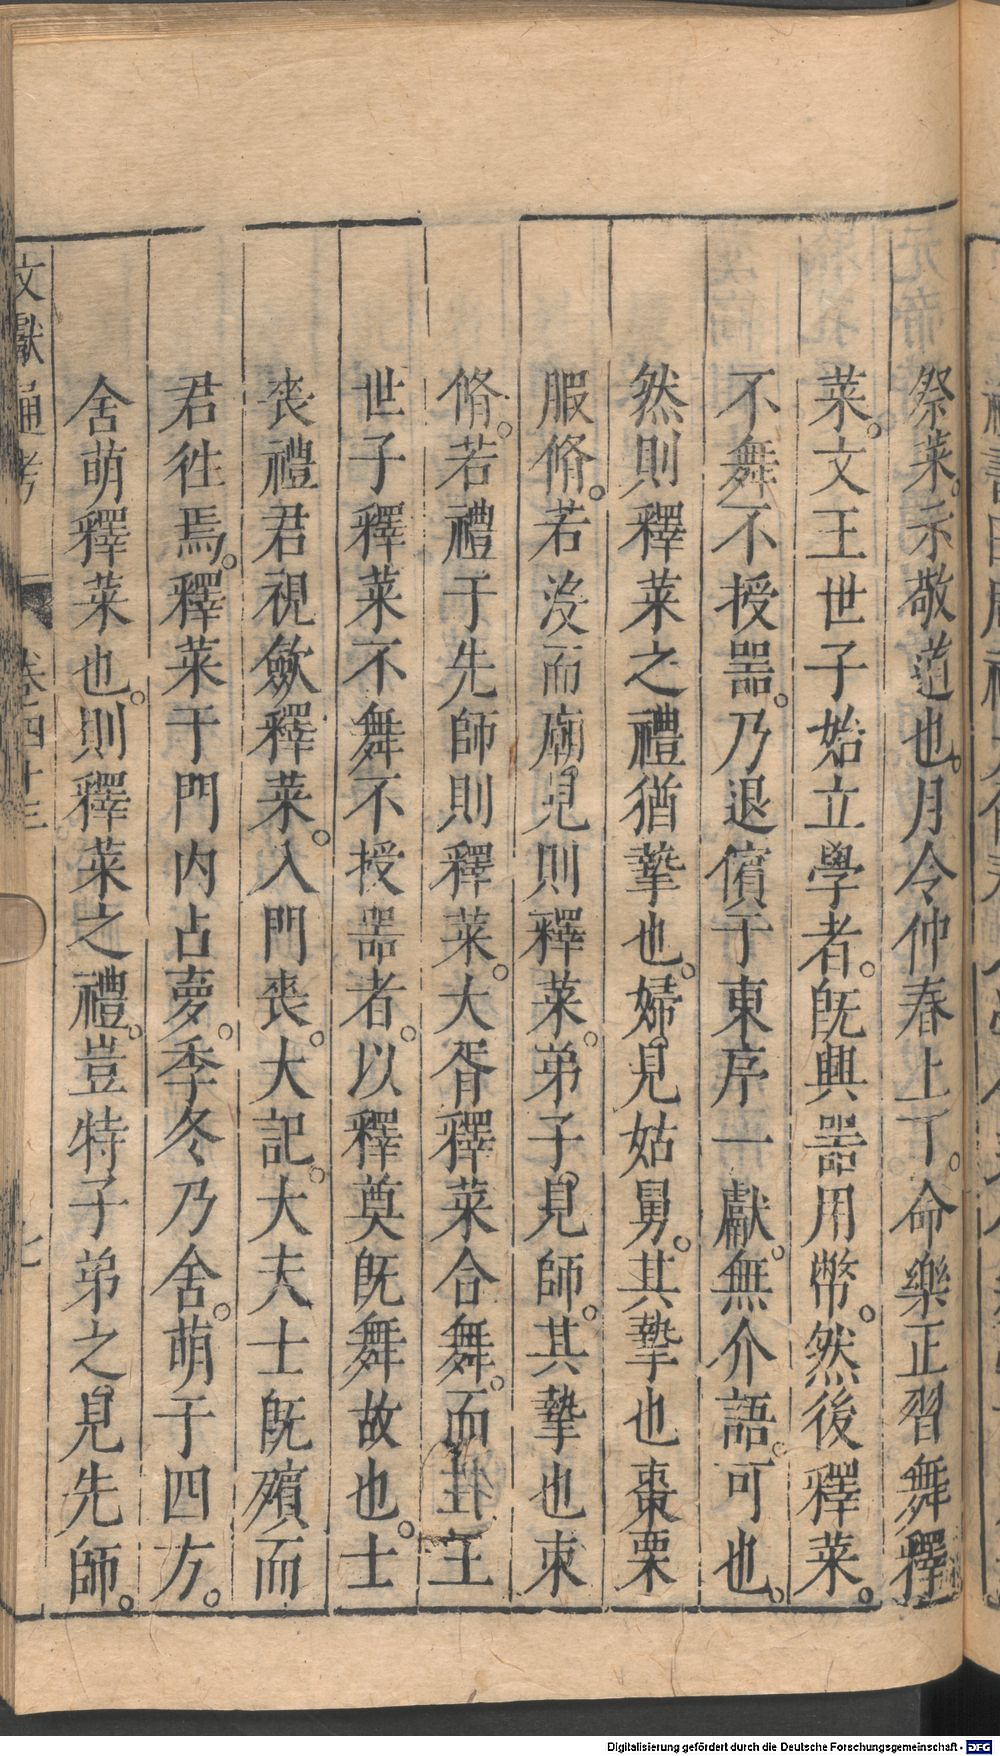 祭菜。示敬道也。月令仲春上丁。命樂正習舞釋
菜。文王世子始立學者。旣興器用幣。然後釋菜。
不舞不授器。乃退儐于東序一獻。無介語。可也。
然則釋菜之禮猶摯也。婦見姑舅。其摯也棗栗
腶脩。若沒而廟見則釋菜。弟子見師。其摯也束
脩。若禮于先師則釋菜。大胥釋菜合舞。而
世子釋菜不舞不授器者。以釋奠旣舞故也。士
喪禮君視斂釋菜。入門喪。大記。大夫士旣殯而
君徃焉。釋菜于門內占夢。季冬乃舍。萌于四方。
舍萌釋菜也。則釋菜之禮。豈特子弟之見先師。
文獻通考
卷四十三
七
Digitalisierung gefördert durch die Deutsche Forschungsgemeinschaft - DFG